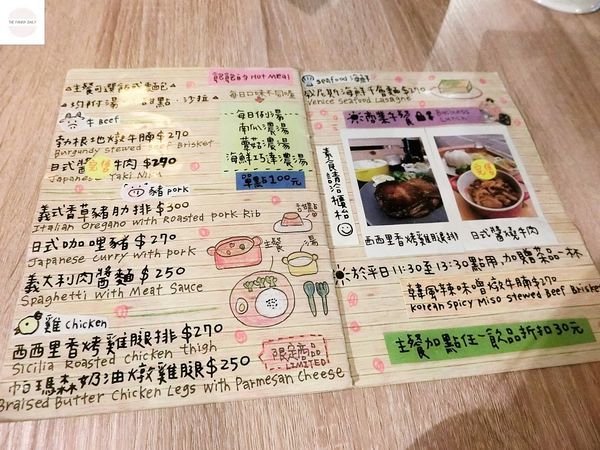 THE FUNNY DAILY
飽飽的 Hot Meal
△主餐可選飯或麵包
△均附湯、甜點、沙拉
每日口味不同哦
牛 Beef
勃根地燉牛腩$270
Burgundy stewed Beef Brisket
日式醬燒牛肉$290
Japanese Yaki Niku
完售
每日例湯
南瓜濃湯
蘑菇濃湯
海鮮巧達濃湯
單點100元
豬 pork
義式香草豬肋排$300
Italian Oregano with Roasted pork Rib
日式咖哩豬$270
Japanese curry with pork
義大利肉醬麵$250
Spaghetti with Meat Sauce
甜點
主餐
湯
雞 chicken
西西里香烤雞腿排$270
Sicilia Roasted chicken thigh
帕瑪森奶油燉雞腿$250
Braised Butter Chicken Legs with Parmesan Cheese
限定商品
LIMITED!
seafood 海鮮
威尼斯海鮮千層麵$290
Venice Seafood Lasagne
Business Lunch
素食請洽櫃檯
西西里香烤雞腿排
日式醬燒牛肉
完售
於平日11:30至13:30點用 加贈菜品一杯
韓風辣味噌燉牛腩$270
Korean Spicy Miso stewed Beef Brisket
主餐加點任一飲品折扣30元